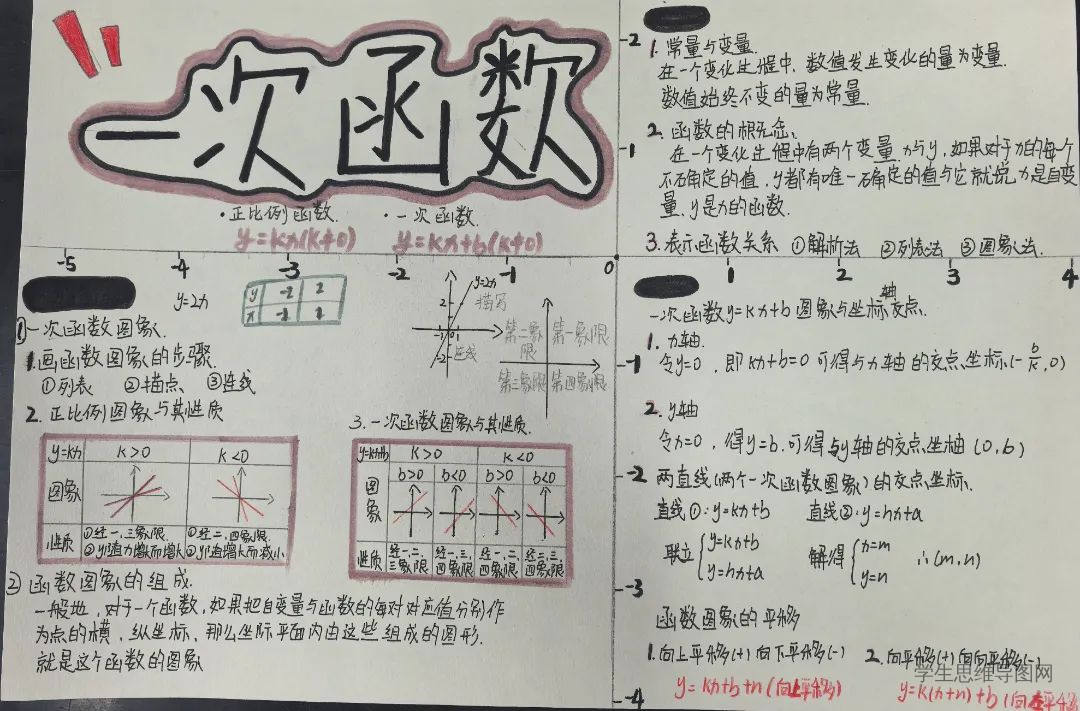 一次函数
·正比例函数. ·一次函数.
y=kx(k≠0) y=kx+b(k≠0)
-5 -4 -3 -2 -1 0 1 2 3 4
-2
-1
-1
-2
-3
-4
1. 常量与变量.
在一个变化过程中, 数值发生变化的量为变量.
数值始终不变的量为常量.
2. 函数的概念:
在一个变化过程中有两个变量x与y, 如果对于x的每个
不确定的值, y都有唯一确定的值与它就说x是自变
量, y是x的函数.
3. 表示函数关系 ①解析法 ②列表法 ③图象法.
y=2x
y -2 2
x -1 1
y=2x
描写
连线
2
-1 0 1
-2
第二象限 第一象限
第三象限 第四象限
①一次函数图象.
1. 画函数图象的步骤.
①列表 ②描点 ③连线
2. 正比例图象与其性质
y=kx k>0 k<0
图象
性质 ①经一、三象限. ①经二、四象限.
②y随x增大而增大 ②y随增大而减小
3. 一次函数图象与其性质.
y=kx+b k>0 k<0
图象 b>0 b<0 b>0 b<0
性质 经一、二、三象限 经一、三、四象限 经一、二、四象限 经二、三、四象限
② 函数图象的组成.
一般地, 对于一个函数, 如果把自变量与函数的每对对应值分别作
为点的横、纵坐标, 那么坐标平面内由这些组成的图形.
就是这个函数的图象
一次函数y=kx+b图象与坐标轴交点.
1. x轴.
令y=0, 即kx+b=0 可得与x轴的交点坐标(-b/k,0)
2. y轴
令x=0, 得y=b, 可得与y轴的交点坐轴 (0,b)
两直线(两个一次函数图象)的交点坐标.
直线①:y=kx+b 直线②:y=hx+a
联立{y=kx+b 解得{x=m ∴(m,n)
y=hx+a y=n
函数图象的平移
1. 向上平移(+) 向下平移(-) 2. 向平移(+) 向平移(-)
y=kx+b+n(向上平移) y=k(x+n)+b(向左平移)
学生思维导图网